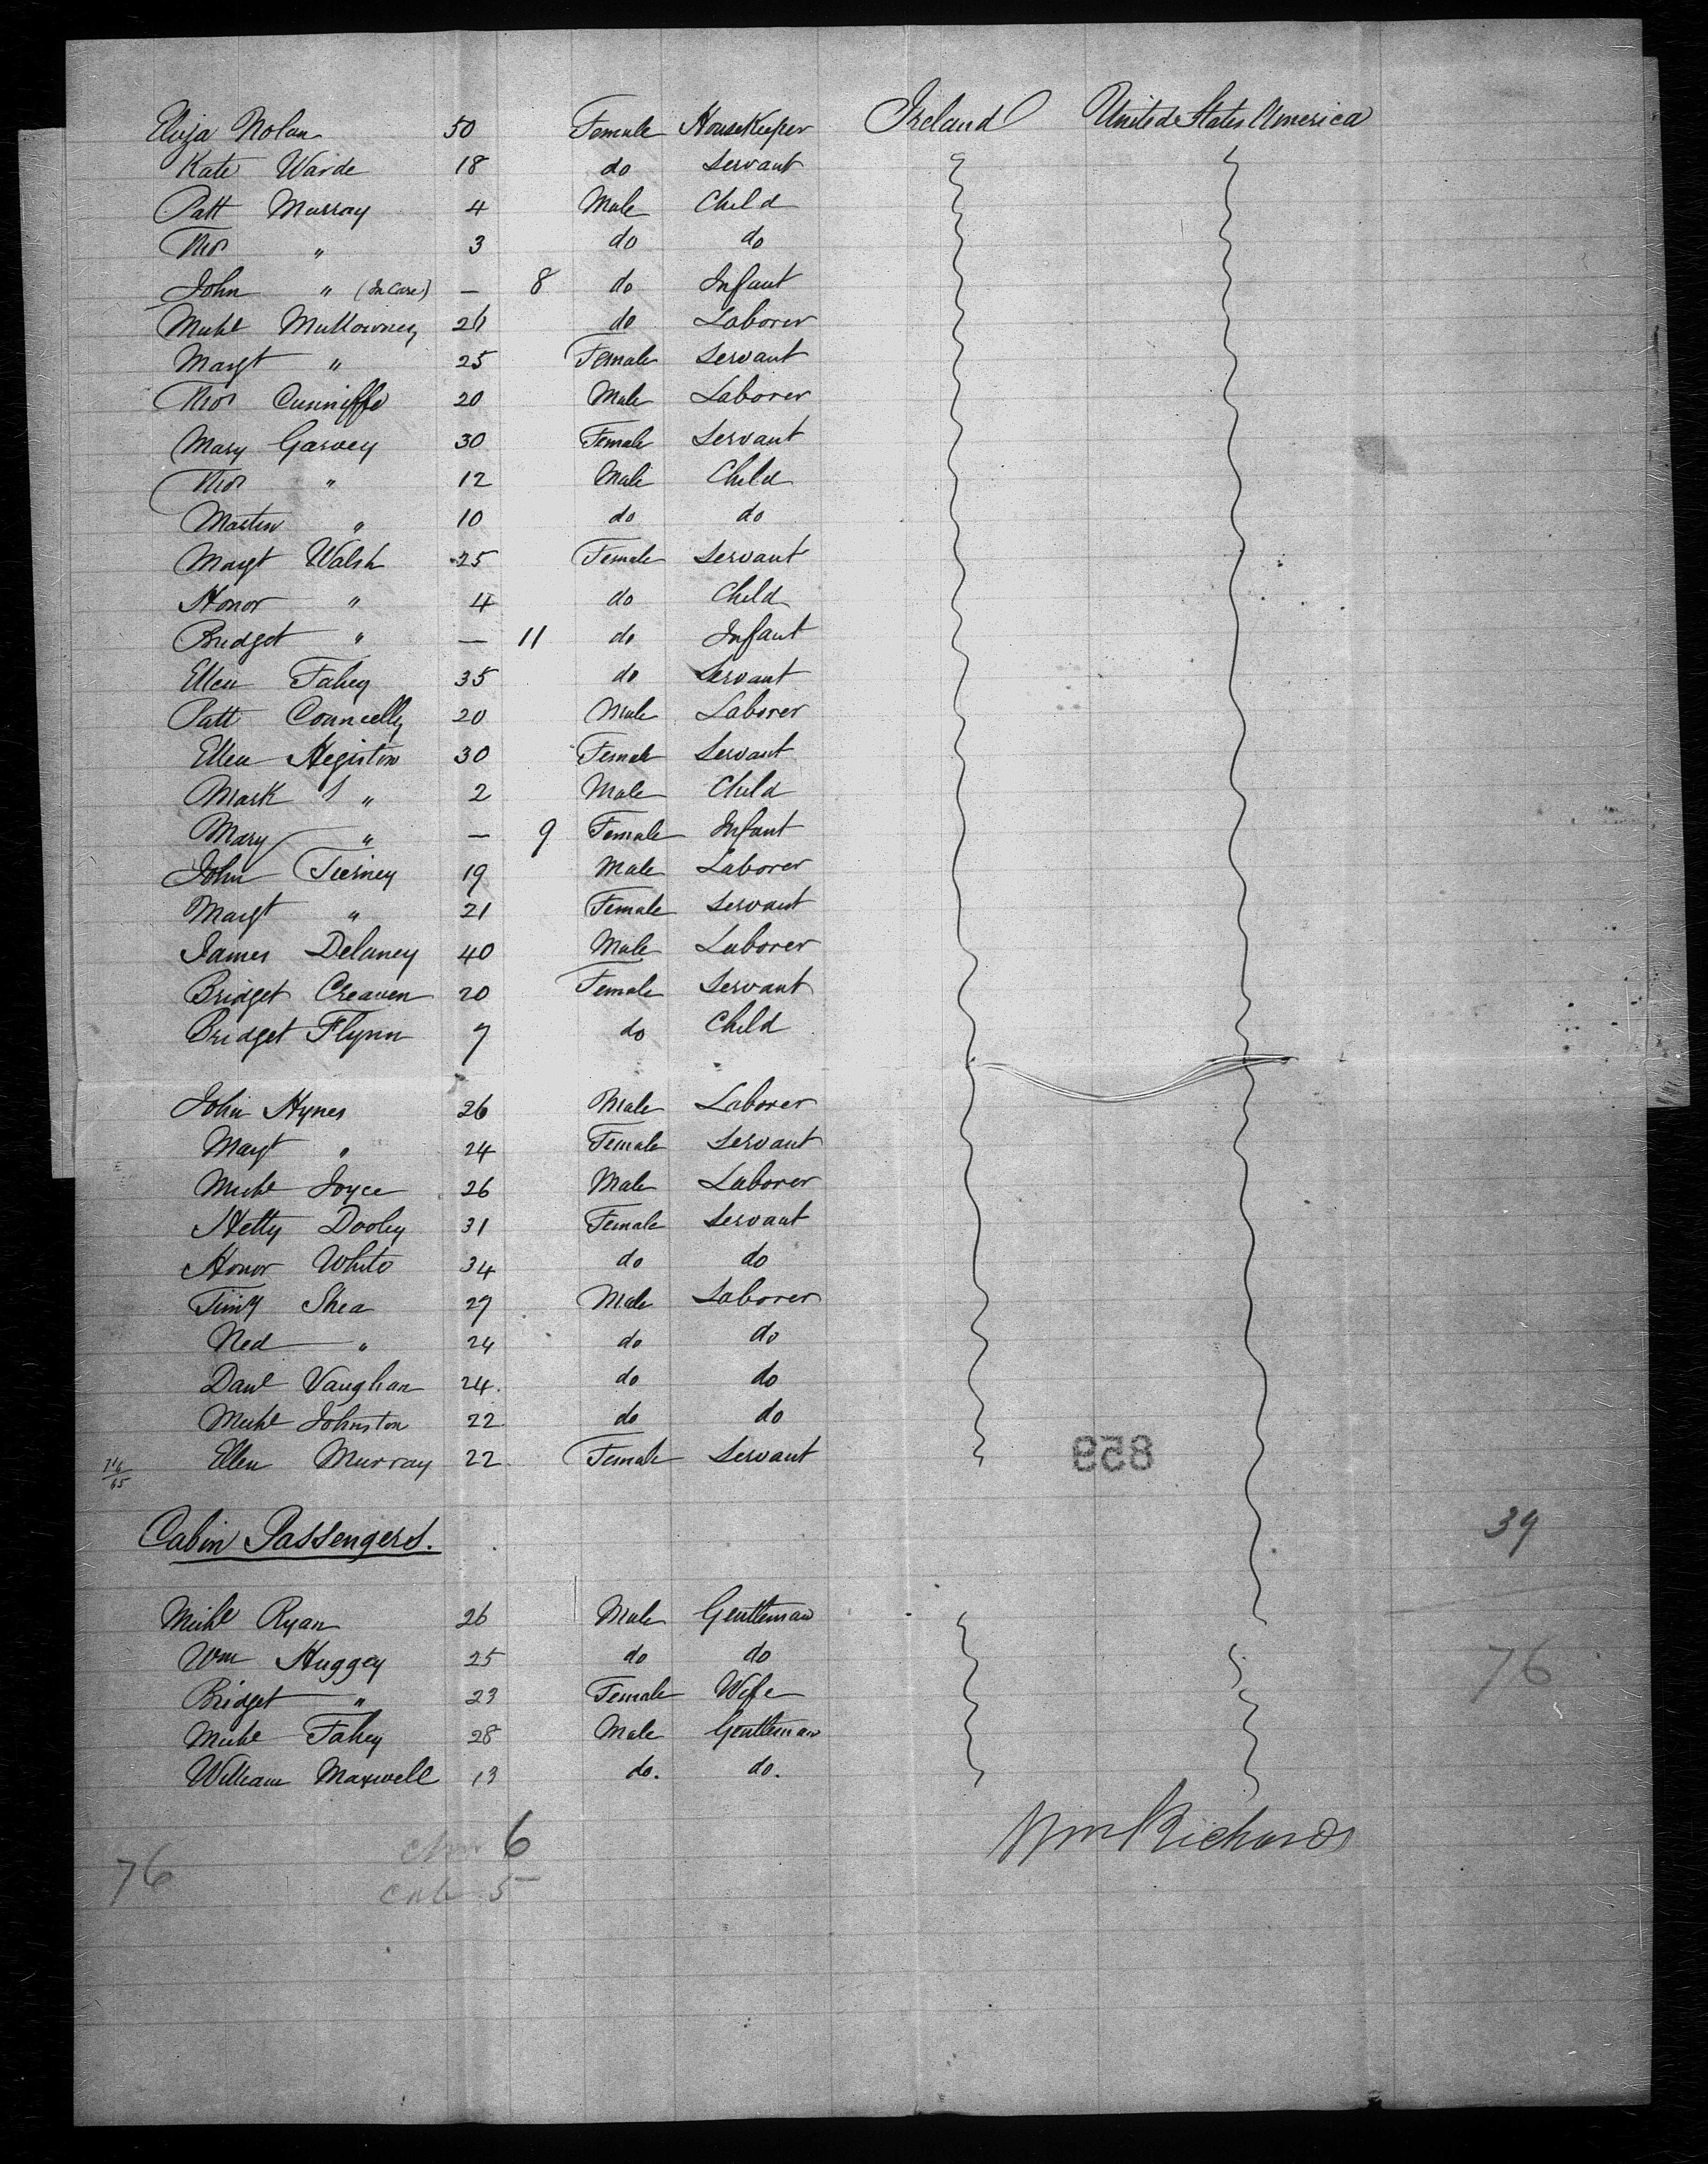 Eliza Nolan 50 Female HouseKeeper Ireland United States America
Kate Warde 18 do Servant
Patt Murray 4 Male Child
Thos " 3 do do
John " (In Care) — 8 do Infant
Michl Mullowney 26 do Laborer
Margt " 25 Female Servant
Thos Cunniffe 20 Male Laborer
Mary Garvey 30 Female Servant
Thos " 12 Male Child
Martin " 10 do do
Margt Walsh 25 Female Servant
Honor " 4 do Child
Bridget " — 11 do Infant
Ellen Fahey 35 do Servant
Patt Conneelly 20 Male Laborer
Ellen Hegistin 30 Female Servant
Mark " 2 Male Child
Mary " — 9 Female Infant
John Tierney 19 Male Laborer
Margt " 21 Female Servant
James Delaney 40 Male Laborer
Bridget Creaven 20 Female Servant
Bridget Flynn 7 do Child
John Hynes 26 Male Laborer
Margt " 24 Female Servant
Michl Joyce 26 Male Laborer
Hetty Dooley 31 Female Servant
Honor White 34 do do
Timy Shea 29 Male Laborer
Ned " 24 do do
Danl Vaughan 24. do do
Michl Johnston 22 do do
Ellen Murray 22 Female Servant
859
Cabin Passengers.
39
Michl Ryan 26 Male Gentleman
Wm Huggey 25 do do
76
Bridget " 23 Female Wife
Michl Fahey 28 Male Gentleman
William Maxwell 13 do. do.
Wm Richards
6
76
cab 5